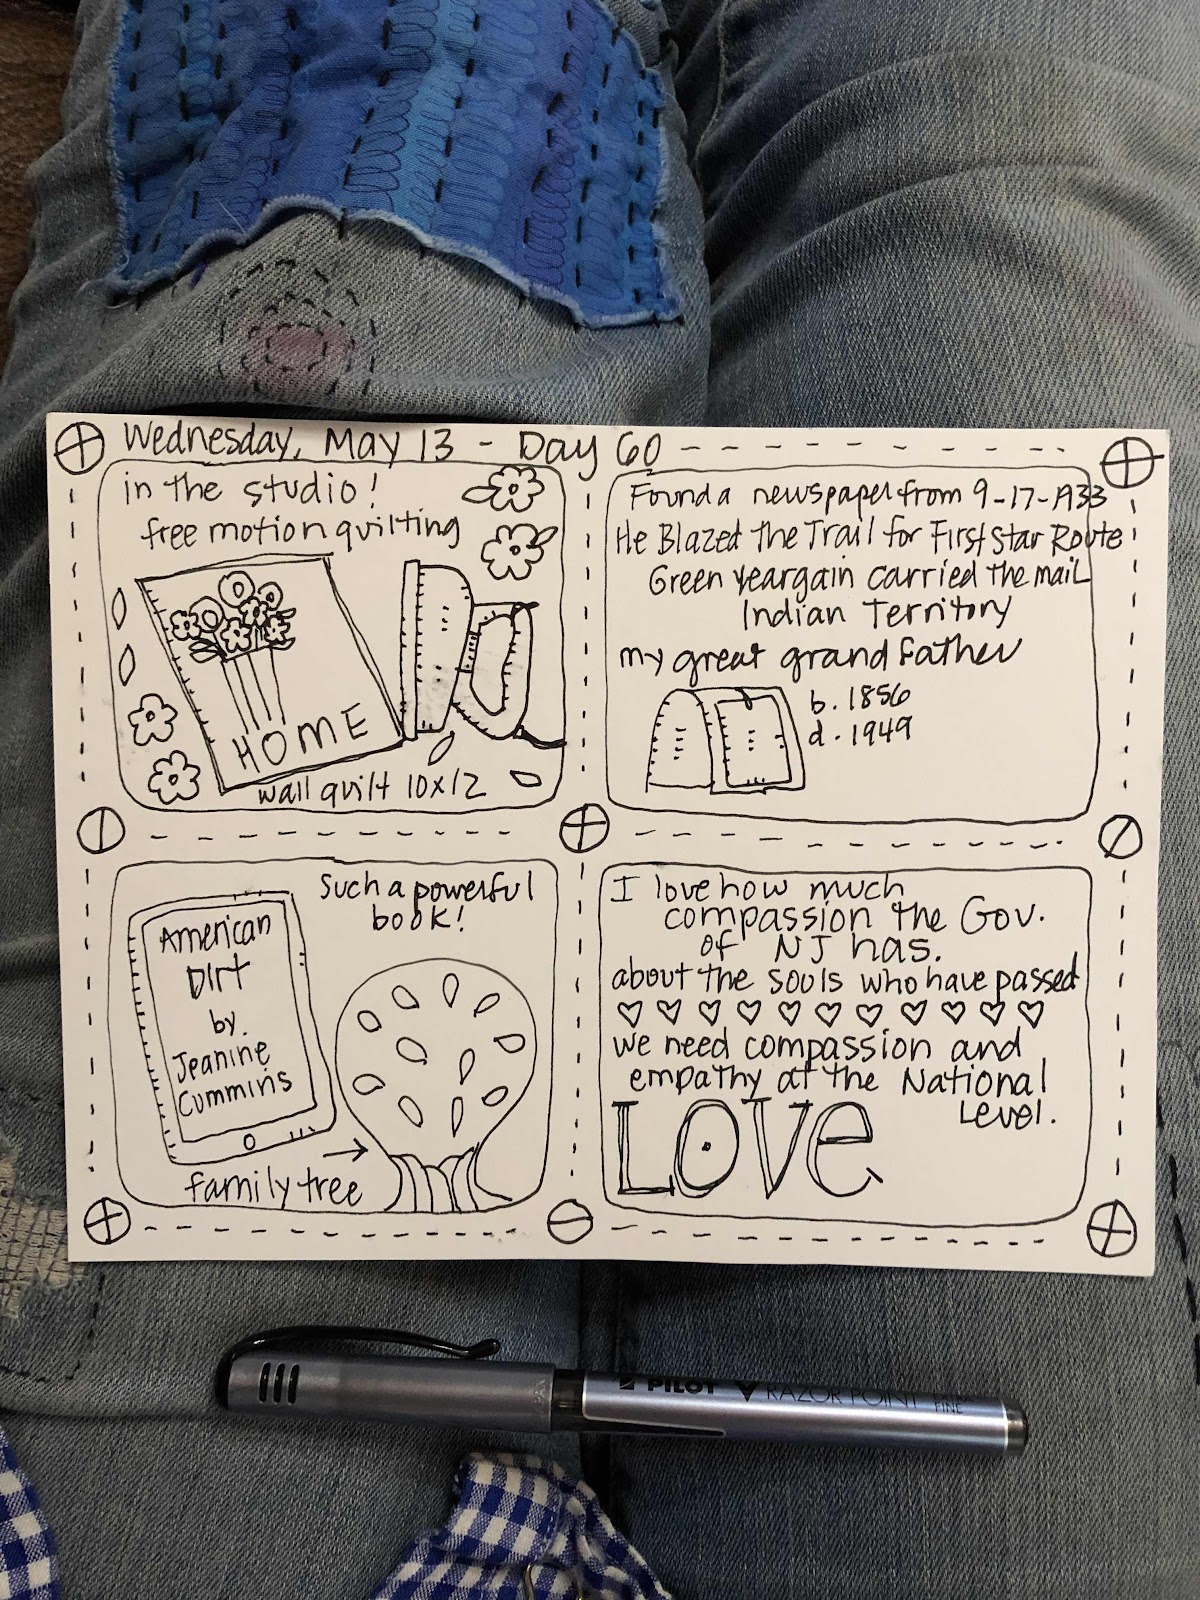 Wednesday, May 13 - Day 60
in the studio!
free motion quilting
HOME
wall quilt 10x12
Found a newspaper from 9-17-1933
He Blazed the Trail for First Star Route
Green Yeargain carried the mail
Indian Territory
my great grandfather
b. 1856
d. 1949
Such a powerful
book!
American
Dirt
by.
Jeanine
Cummins
family tree
I love how much
compassion the Gov.
of NJ has.
about the souls who have passed
we need compassion and
empathy at the National
Level.
LOVe
PILOT V RAZOR POINT FINE